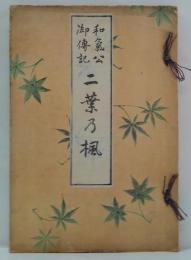 和氣公
御傳記
二葉乃楓